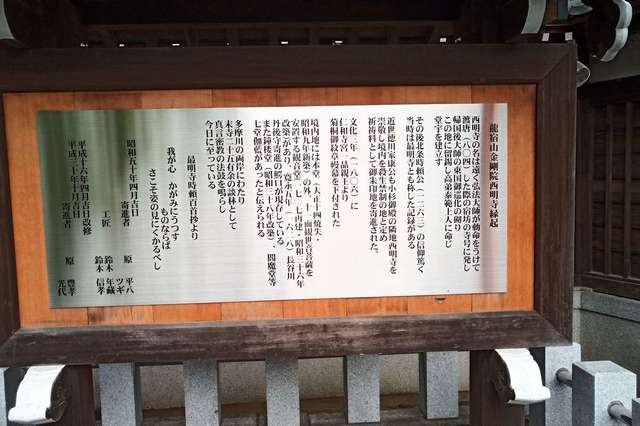 龍宿山金剛院西明寺縁起
西明寺の名は遠く弘法大師が勅命をうけて
渡唐（八〇四）した際の宿坊の寺号に発し
帰国後大師の東国御巡化の砌り
この地に留錫し高弟泰範上人に命じ
堂宇を建立す
その後北条時頼公（一二六三）の信仰篤く
当時は最明寺とも称した記録がある
近世徳川家康公も小杉御殿の隣地西明寺を
崇敬し境内を殺生禁制の地と定め
祈祷料として御朱印地を寄進された。
文化三年（一八〇六）に
仁和寺宮一品親王より
菊桐御紋章幕を下付された
境内地には本堂（大正十四焼失・
昭和九年新築）の外、十一面観世音菩薩を
安置する観音堂（一七一七再建、昭和三十六年
改築）があり、寛永五年（一六二八）長谷川
丹後守寄進の鰐口が現存している
また鐘楼堂（昭和三十八年改築）、閻魔堂等
七堂伽藍があったと伝えられる
多摩川の両岸にわたり
末寺二十五有余の談林として
真言密教の法鼓を鳴らし
今日に至っている
最明寺時頼百首抄より
我が心　かがみにうつす
ものならば
さこそ姿の見にくかるべし
昭和五十年四月吉日
寄進者　原　平八
ツギ
工匠　鈴木　年蔵
鈴木　信孝
平成十六年四月吉日改修
平成二十年十月吉日
寄進者　原　豊孝
光代